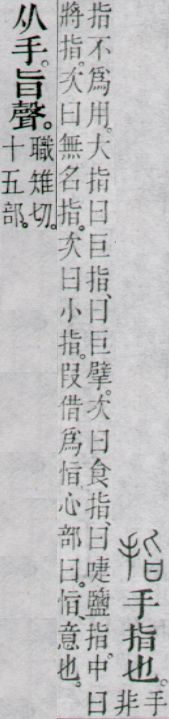 指手指也。手
非
指不爲用。大指曰巨指、曰巨擘。次曰食指、曰啑鹽指。中曰
將指。次曰無名指。次曰小指。叚借爲恉心部曰。恉、意也。
从手。旨聲。職雉切。
十五部。